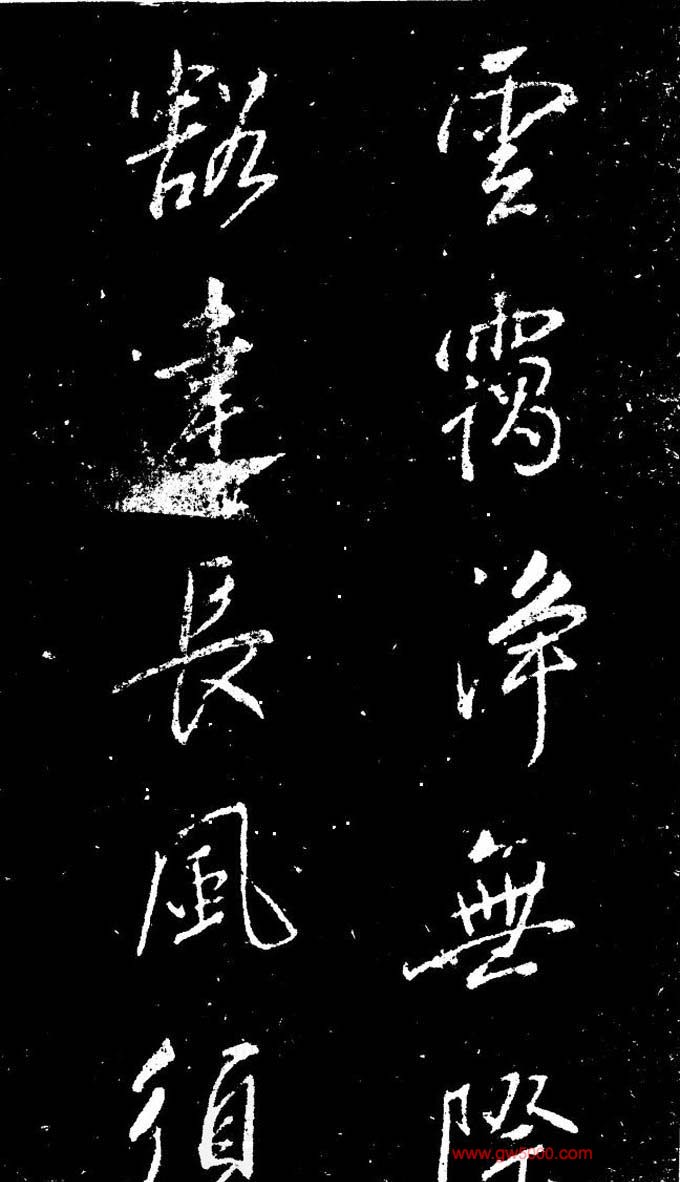 雲靄淨無際
豁達長風須
www.gw5000.com